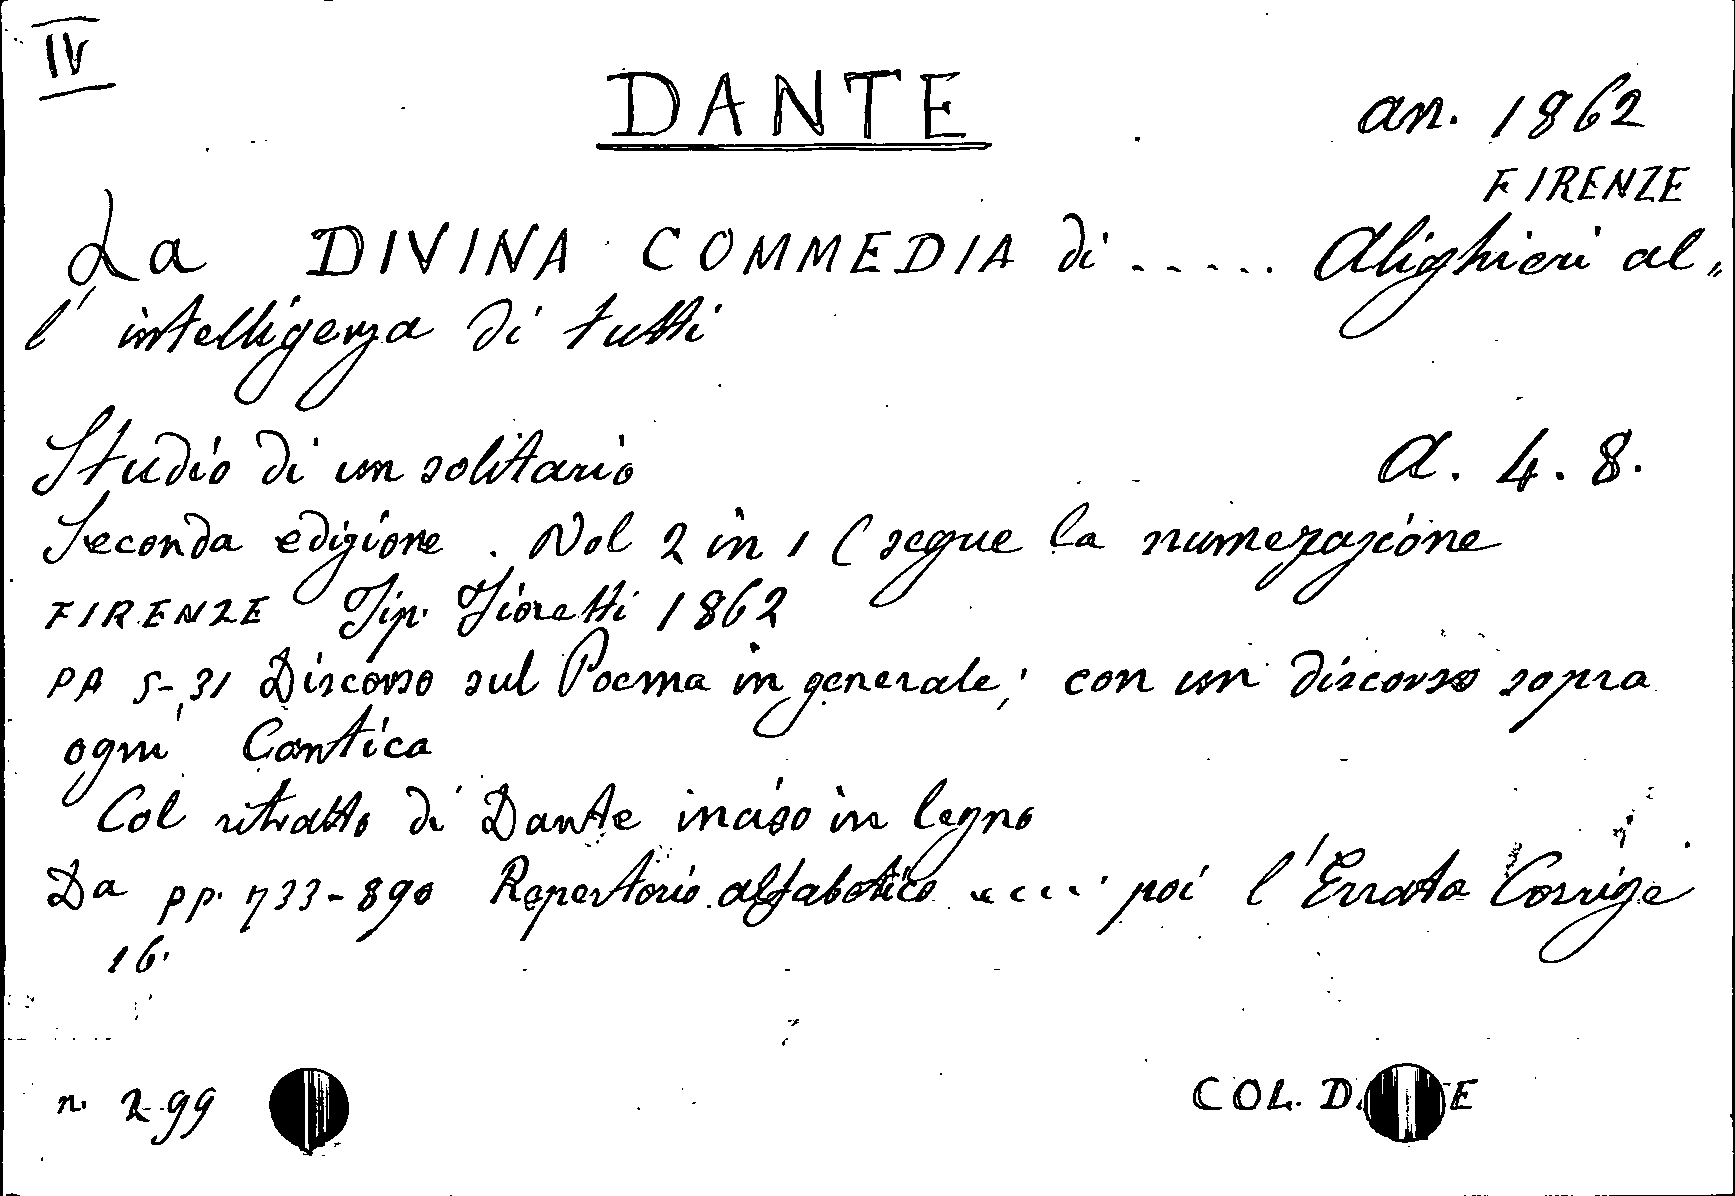 IV
DANTE
an. 1862
FIRENZE
La DIVINA COMMEDIA di ..... Alighieri al„
l' intelligenza di tutti
Studio di un solitario
A. 4. 8.
Seconda edizione. Vol 2 in 1 (segue la numerazione
FIRENZE Tip. Fioretti 1862
PA 5-31 Discorso sul Poema in generale; con un discorso sopra
ogni Cantica
Col ritratto di Dante inciso in legno
Da pp. 733-890 Repertorio alfabetico ..... poi l'Errata Corrige
16.
n. 299
COL. D E